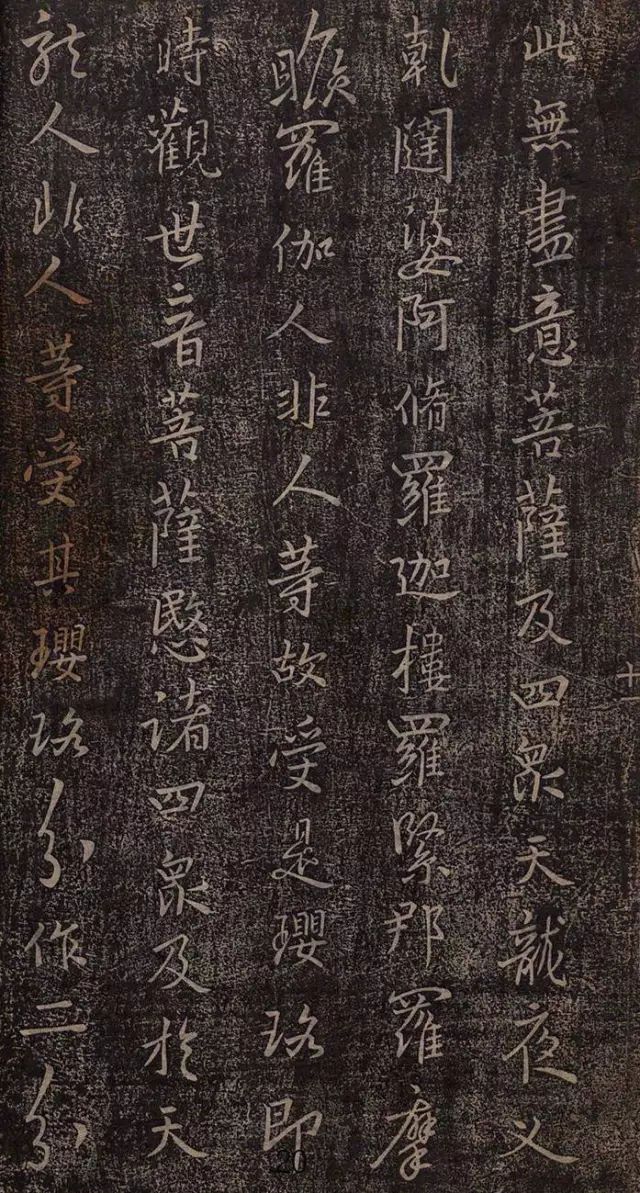 此無盡意菩薩及四衆天龍夜义
乹闥婆阿脩羅迦樓羅緊那羅摩
睺羅伽人非人等故受是瓔珞即
時觀世音菩薩愍諸四衆及扵天
龍人非人等受其瓔珞分作二分
十
20